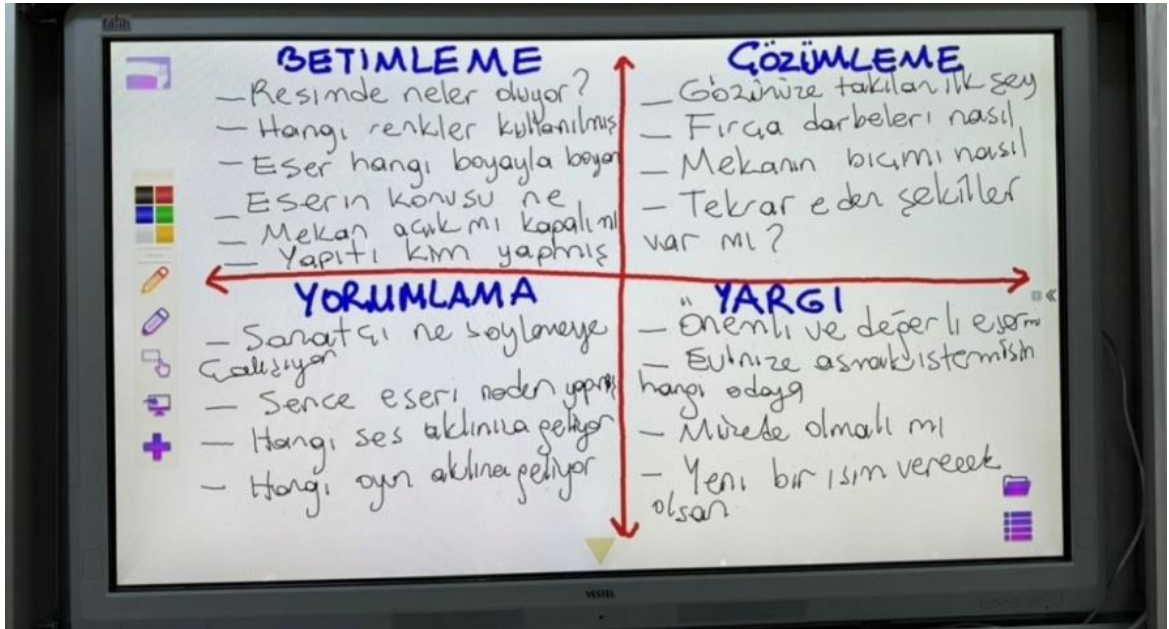 fatih
BETIMLEME
— Resimde neler oluyor?
— Hangi renkler kullanılmış
— Eser hangi boyayla boyan
— Eserin konusu ne
— Mekan açık mı kapalı mı
— Yapıtı kim yapmış
ÇÖZÜMLEME
— Gözünüze takılan ilk şey
— Fırça darbeleri nasıl
— Mekanın biçimi nasıl
— Tekrar eden şekiller
var mı?
YORUMLAMA
— Sanatçı ne söylemeye
çalışıyor
— Sence eseri neden yapmış
— Hangi ses aklınıza geliyor
— Hangi oyun aklına geliyor
YARGI
— Önemli ve değerli eser mi
— Evinize asmak istermisin
hangi odaya
— Müzede olmalı mı
— Yeni bir isim verecek
olsan
VESTEL